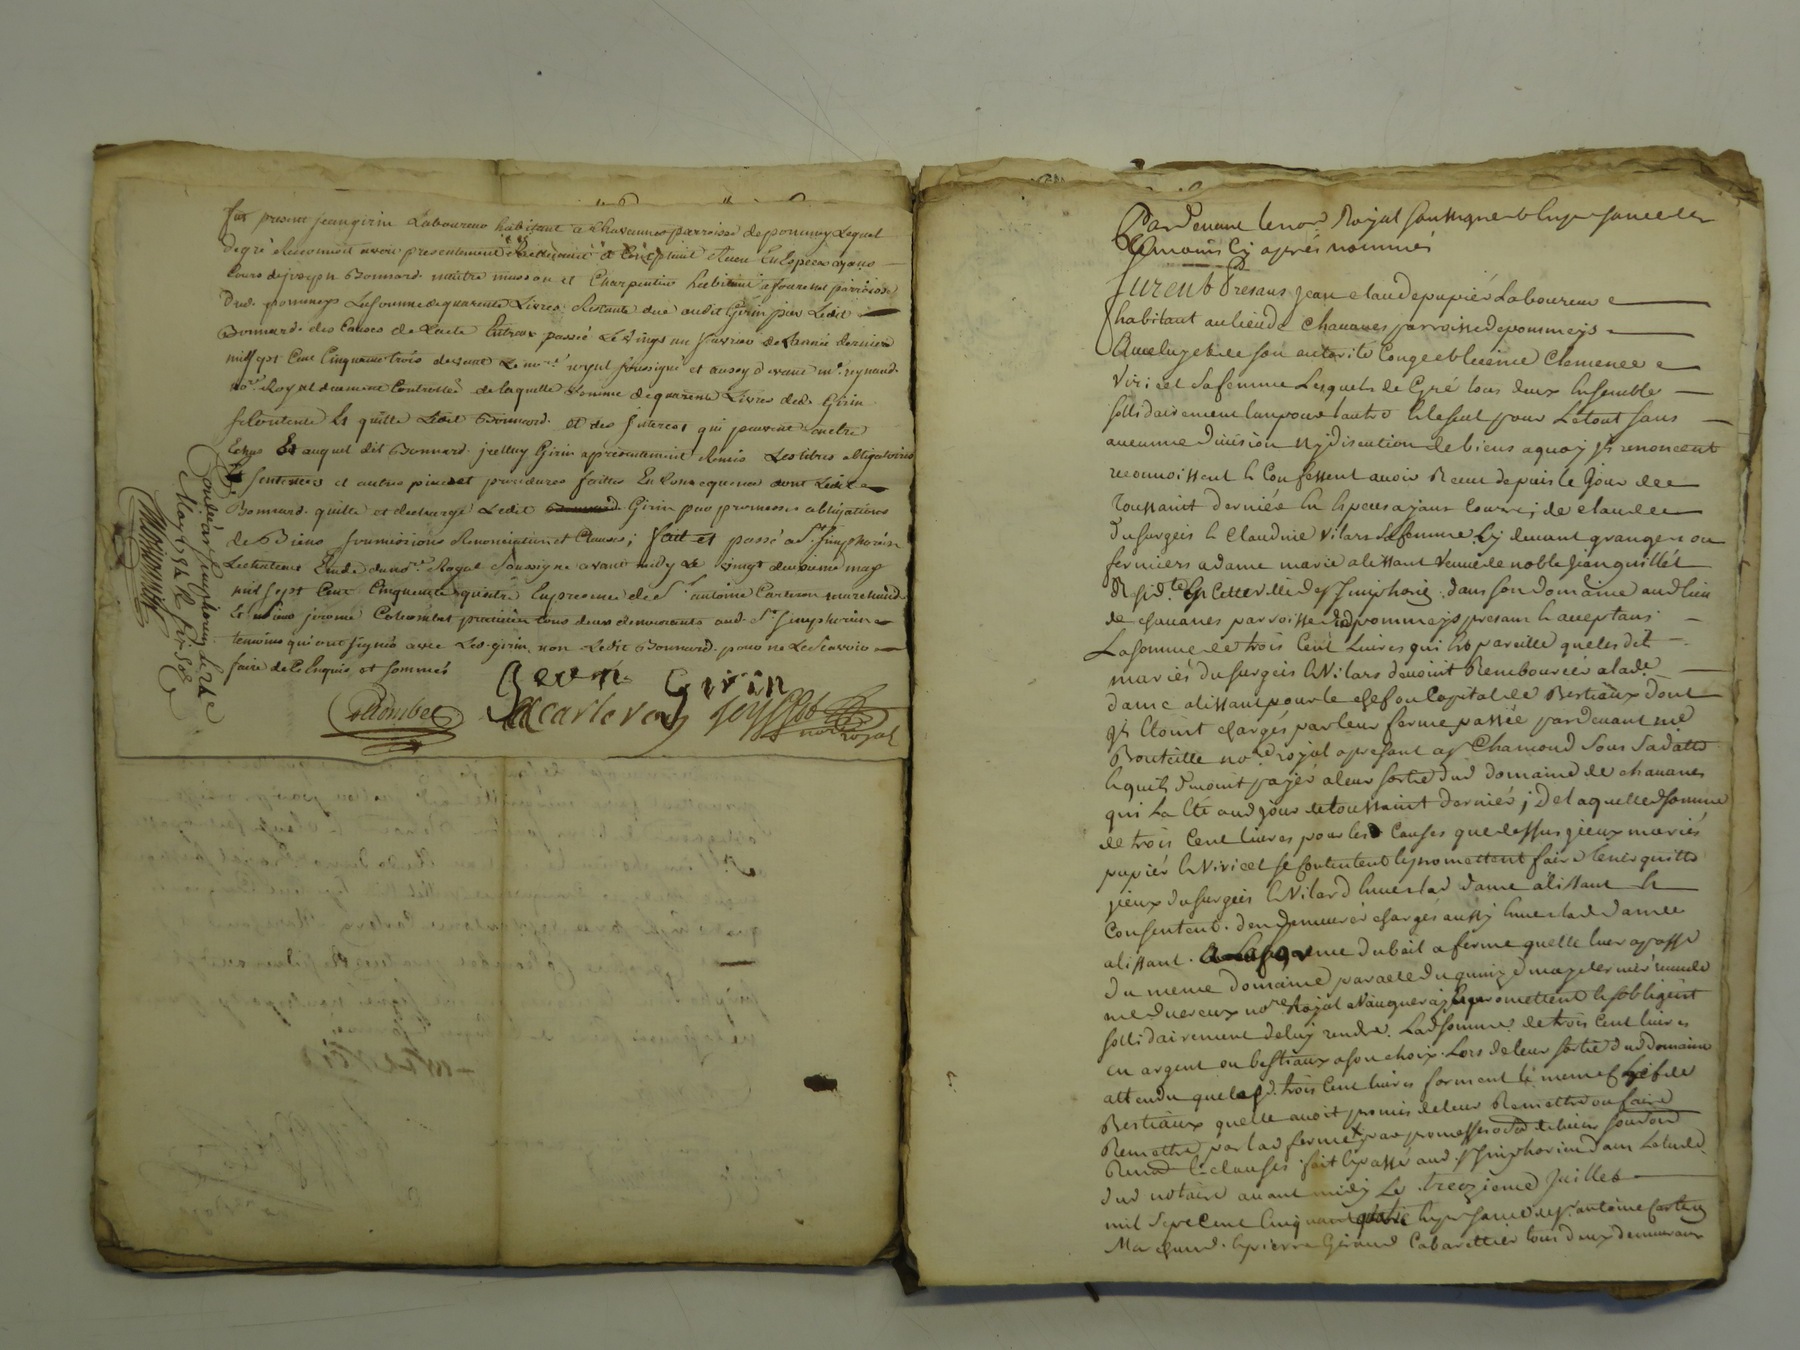 fut present jean girin Laboureur habitant a Chavannes parroisse de pommey Lequel
de gré a reconnoit avoir presentement Reellement et Reçu En Especes ayans
Cours de joseph Bonnard maitre masson et Charpentier habitant a fouresse parroisse
dud. pommeys La somme de quarente Livres Restante due audit Girin par Ledit
Bonnard des Causes de Lacte Entreux passé Le vingt un fevrier de Lannée derniere
mil sept Cent Cinquante trois devant Le no.re royal soussigné et aussy devant m.e reynaud
no.re Royal deument Controllée de laquelle somme de quarente Livres led. Girin
se Contente Et quitte Ledit Bonnard et des Interest qui peuvent en etre
Echus Et auquel dit Bonnard icelluy Girin a presentement Remis Les titres obligatoires
Sentences et autres pieces et procedures faittes En Consequence dont Ledit
Bonnard quitte et decharge Ledit Girin par promesses obligations
de Biens soumissions Renonciation et Clauses ; fait et passé a S.t Simphorien
Lechateau Etude du no.re Royal soussigné avant midy Le vingt deuxieme may
mil sept Cent Cinquante quatre En presence de S.r antoine Carteron marchand
Et jerome Colombet praticien tous deux demeurants aud. S.t Simphorien
temoins qui ont signés avec Led. girin non Ledit Bonnard pour ne Le scavoir
faire de Ce Enquis et sommés
Jean Girin
Colombet A Carteron
no.re royal
Controllé a S.t Simphorien Le
May 1754 R.
Pardevant le no.re Royal soussigné et En presence des
temoins Cy apres nommés
furent Presans jean claude papier Laboureur
habitant au lieu de chauanes parroisse de pommeys
Avec luy et de son autorité Congé et licence Clemence
Viricel sa femme Lesquels de Gré tous deux Ensemble
sollidairement lun pour lautre Et le seul pour Le tout sans
aucunne division ny discution de biens a quoy ils renoncent
reconnoissent Et Confessent avoir Receu depuis le jour de
Toussaint dernier En Especes ayant Cours, de claude
Dusurgeis Et Claudine Vilard sa femme Cy devant grangers ou
fermiers a dame marie alissant veuve de noble jean quillet
Resid.te En Cette ville de S.t Simphorien dans son domaine aud lieu
de chauanes parroisse dud pommeys presans Et acceptans
La somme de trois Cent livres qui Est pareille que lesdit
mariés Dusurgeis Et Vilard devoint Rembourcer a lad.e
dame alissant pour le chef ou Capital de Bestiaux dont
ils Etoint chargés par leur ferme passée pardevant me
Bouteille no.re royal apresant a S.t Chamond sous sa datte
Et quils devoint payer a leur sortie dud domaine de chauanes
qui a Eté aud jour de toussaint dernier ; de laquelle somme
de trois Cent livres pour les Causes que dessus yceux mariés
papier Et Viricel se Contentent Et promettent faire tenir quitte
yceux Dusurgeis Et Vilard Envers lad dame alissant Et
Consentent den demeurer chargés aussy Envers lad dame
alissant. A la forme du bail a ferme quelle leur a passé
du meme domaine par acte du quinze may dernier receu de
me duereux no.re Royal a Vaugneray Et promettent Et sobligent
sollidairement de luy rendre Lad somme de trois Cent livres
en argent ou bestiaux a son choix. Lors de leur sortie dud domaine
attendu que lesd. trois Cent livres forment le meme chef de
Bestiaux quelle avoit promis de leur Remettre ou faire
Remettre par lad ferme par promesses
Renon.on Et clauses fait Et passé aud S.t Simphorien dans Letude
dud notaire avant midy Le treizieme Juillet
mil Sept Cent Cinquante quatre En presance de S.r antoine Carteron
Marchand Et pierre Geraud Cabarettier tous deux demeurans